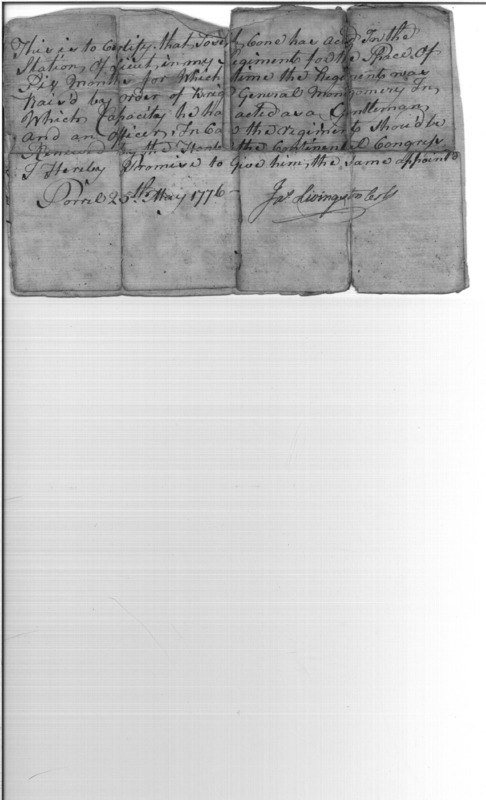 This is to Certify that Joseph Cone has acted In the
Station Of Lieut, in my Regiment for the Space Of
Six Months for Which time the Regiment was
Rais'd by order of General Montgomery In
Which Capacity he has acted as a Gentleman
and an Officer, In Case the regiment Should be
Renewed by the Continental Congress
I Hereby Promise to Give him, the Same appoint
Sorrel 25th May 1776
Jas Livingston